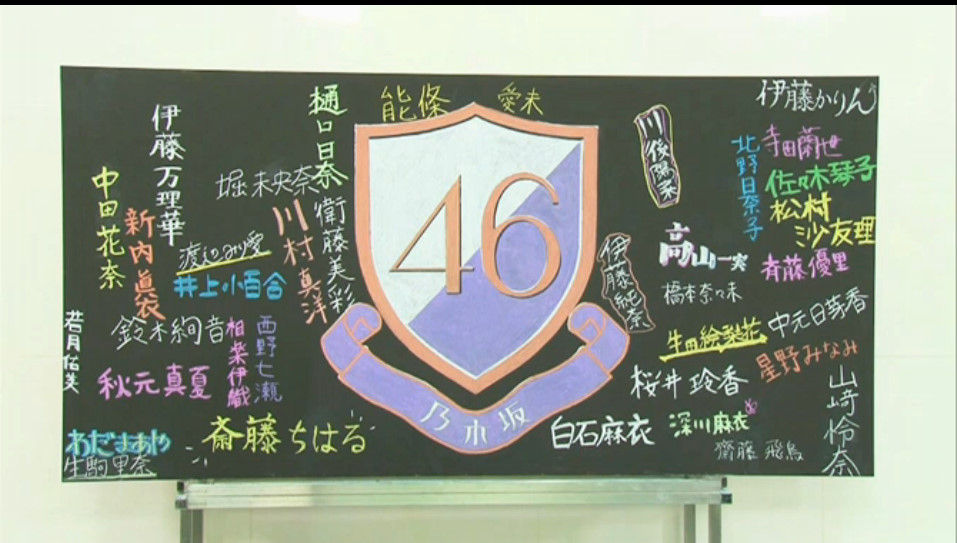 樋口日奈
能條 愛未
伊藤かりん
伊藤万理華
川後陽菜
寺田蘭世
北野日奈子
中田花奈
堀未央奈
佐々木琴子
新内眞衣
川村真洋
衛藤美彩
松村沙友理
渡辺みり愛
46
高山一実
斉藤優里
井上小百合
伊藤純奈
橋本奈々未
中元日芽香
若月佑美
鈴木絢音
相楽伊織
西野七瀬
生田絵梨花
星野みなみ
秋元真夏
桜井玲香
山崎怜奈
乃木坂
斎藤ちはる
白石麻衣
深川麻衣
わだまあや
生駒里奈
齋藤飛鳥